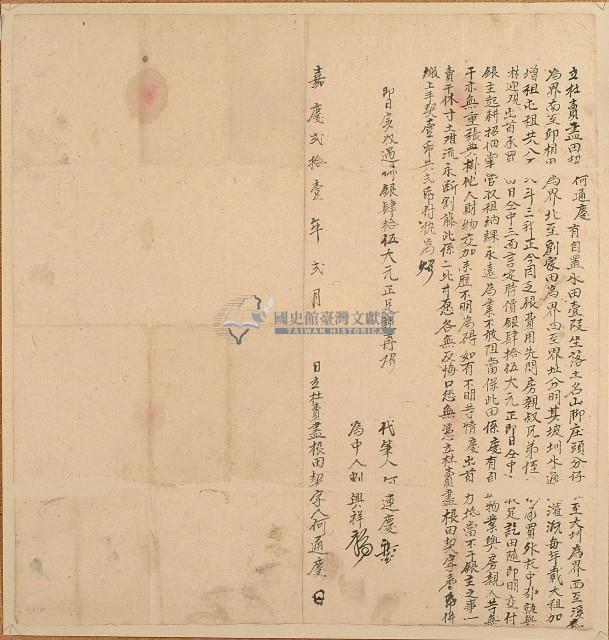 立杜賣盡田契 何通慶 有自置水田壹段坐落土名山腳庄頭分
至大圳為界西至溪
為界南至邱相田 為界北至劉家田為界四至界址分明其坡圳水通
灌溉每年載大租加
增租屯租共八 斗三升正今因乏銀費用先問房親叔兄弟侄
承買外托中
林迎觀出首承買 日仝中三面言定時價銀肆拾伍大元正即日仝中
收足訖田隨即明交付
銀主起耕招佃掌管收租納課永遠為業不敢阻當保此田係慶有自
物業與房親人等無
干亦無重張典掛他人財物交加來歷不明為碍如有不明等情慶出首
力抵當不干銀主之事一
賣千休寸土难流永斷割藤此係二比甘愿各無反悔口恐無憑立杜賣盡根田契字壹帋併
繳上手契壹帋共弍帋付執為炤
即日實收過 銀肆拾伍大元正足訖再炤
代筆人 何連慶
為中人 劉興祥
嘉慶弍拾壹年弍月 日立杜賣盡根田契字人何通慶
國史館臺灣文獻館
TAIWAN HISTORICA